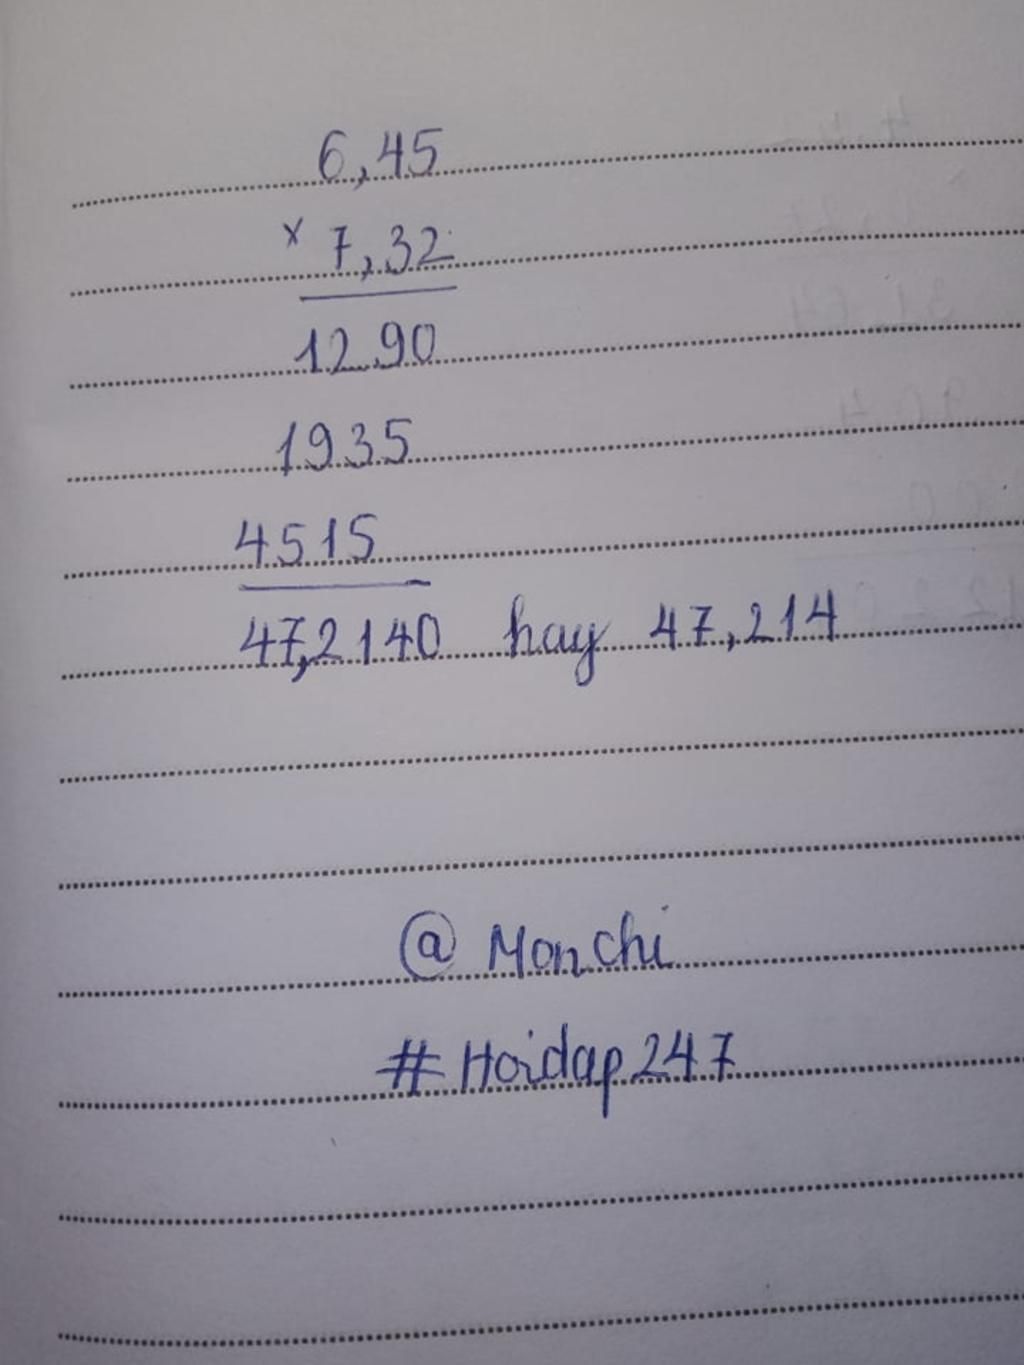 6,45
× 7,32
1290
1935
4515
47,2140 hay 47,214
@ Monchi
# Hoidap247